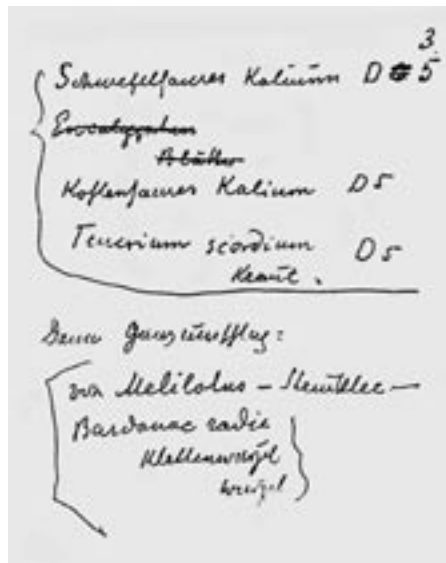 3.
Schwefelsaures Kalium D 5
Eucalyptus
Blätter
Kohlensaures Kalium D5
Teucrium scordium D5
Kraut.
von Melilotus – Steinklee –
Bardanae radix
Klettenwurzel
wurzel